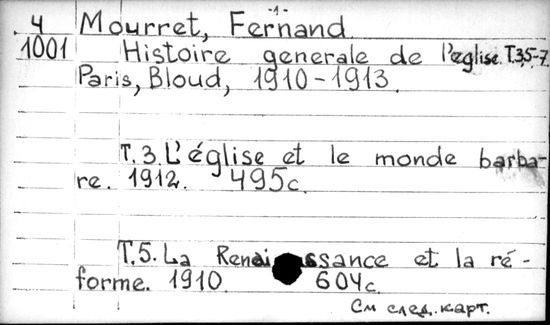 -1-
4 Mourret, Fernand
1001 Histoire generale de l'eglise. T.3,5-7.
Paris, Bloud, 1910-1913.
T. 3. L'église et le monde barba-
re. 1912. 495c.
T.5. La Renaissance et la ré-
forme. 1910. 604c.
См след. карт.